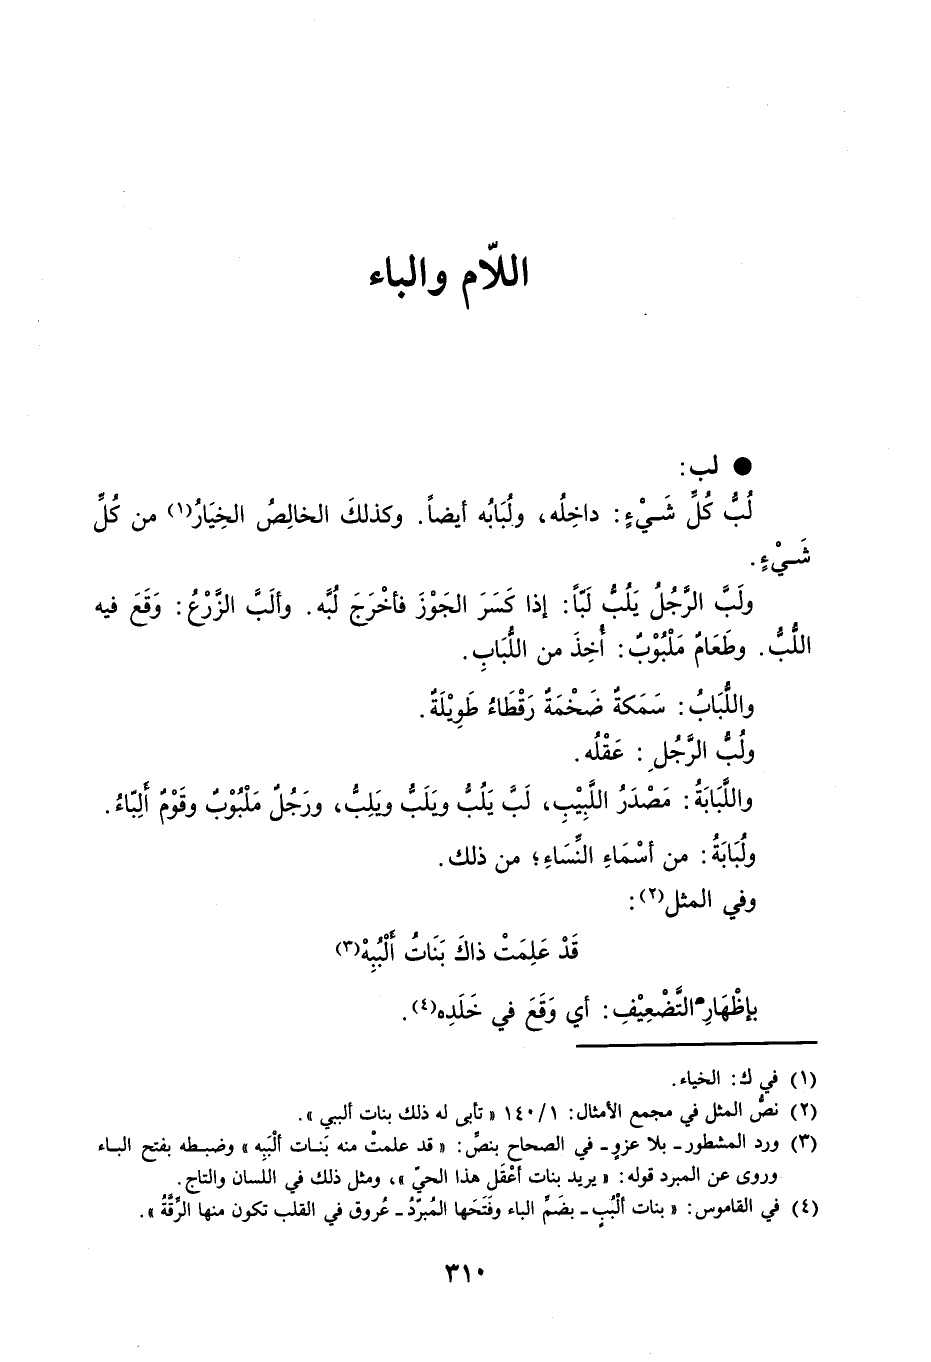 اللّام والباء
● لب:
لُبُّ كُلِّ شَيْءٍ: داخِلُه، ولُبَابُه أيضاً. وكذلكَ الخالِصُ الخِيَارُ(١) من كُلِّ
شَيْءٍ.
ولَبَّ الرَّجُلُ يَلُبُّ لَبّاً: إذا كَسَرَ الجَوْزَ فأخْرَجَ لُبَّه. وألَبَّ الزَّرْعُ: وَقَعَ فيه
اللُّبُّ. وطَعَامٌ مَلْبُوْبٌ: أُخِذَ من اللُّبَابِ.
واللُّبَابُ: سَمَكةٌ ضَخْمَةٌ رَقْطَاءُ طَوِيْلَةٌ.
ولُبُّ الرَّجُلِ: عَقْلُه.
واللَّبَابَةُ: مَصْدَرُ اللَّبِيْبِ، لَبَّ يَلُبُّ ويَلَبُّ ويَلِبُّ، ورَجُلٌ مَلْبُوْبٌ وقَوْمٌ أَلِبّاءُ.
ولُبَابَةُ: من أسْمَاءِ النِّسَاءِ؛ من ذلك.
وفي المثل(٢):
قَدْ عَلِمَتْ ذاكَ بَنَاتُ أَلْبُبِهْ(٣)
بإظْهَارِ التَّضْعِيْفِ: أي وَقَعَ في خَلَدِه(٤).
(١) في ك: الخياء.
(٢) نصُّ المثل في مجمع الأمثال: ١٤٠/١ « تأبى له ذلك بنات ألببي ».
(٣) ورد المشطور ـ بلا عزوٍ ـ في الصحاح بنصِّ: « قد علمتْ منه بَنـات ألْبَبِه » وضبـطه بفتح البـاء
وروى عن المبرد قوله: « يريد بنات أعْقَل هذا الحيّ »، ومثل ذلك في اللسان والتاج.
(٤) في القاموس: « بنات ألْبُبٍ ـ بضَمِّ الباء وفَتَحَها المُبرِّدُ ـ عُروق في القلب تكون منها الرِّقَّةُ ».
٣١٠